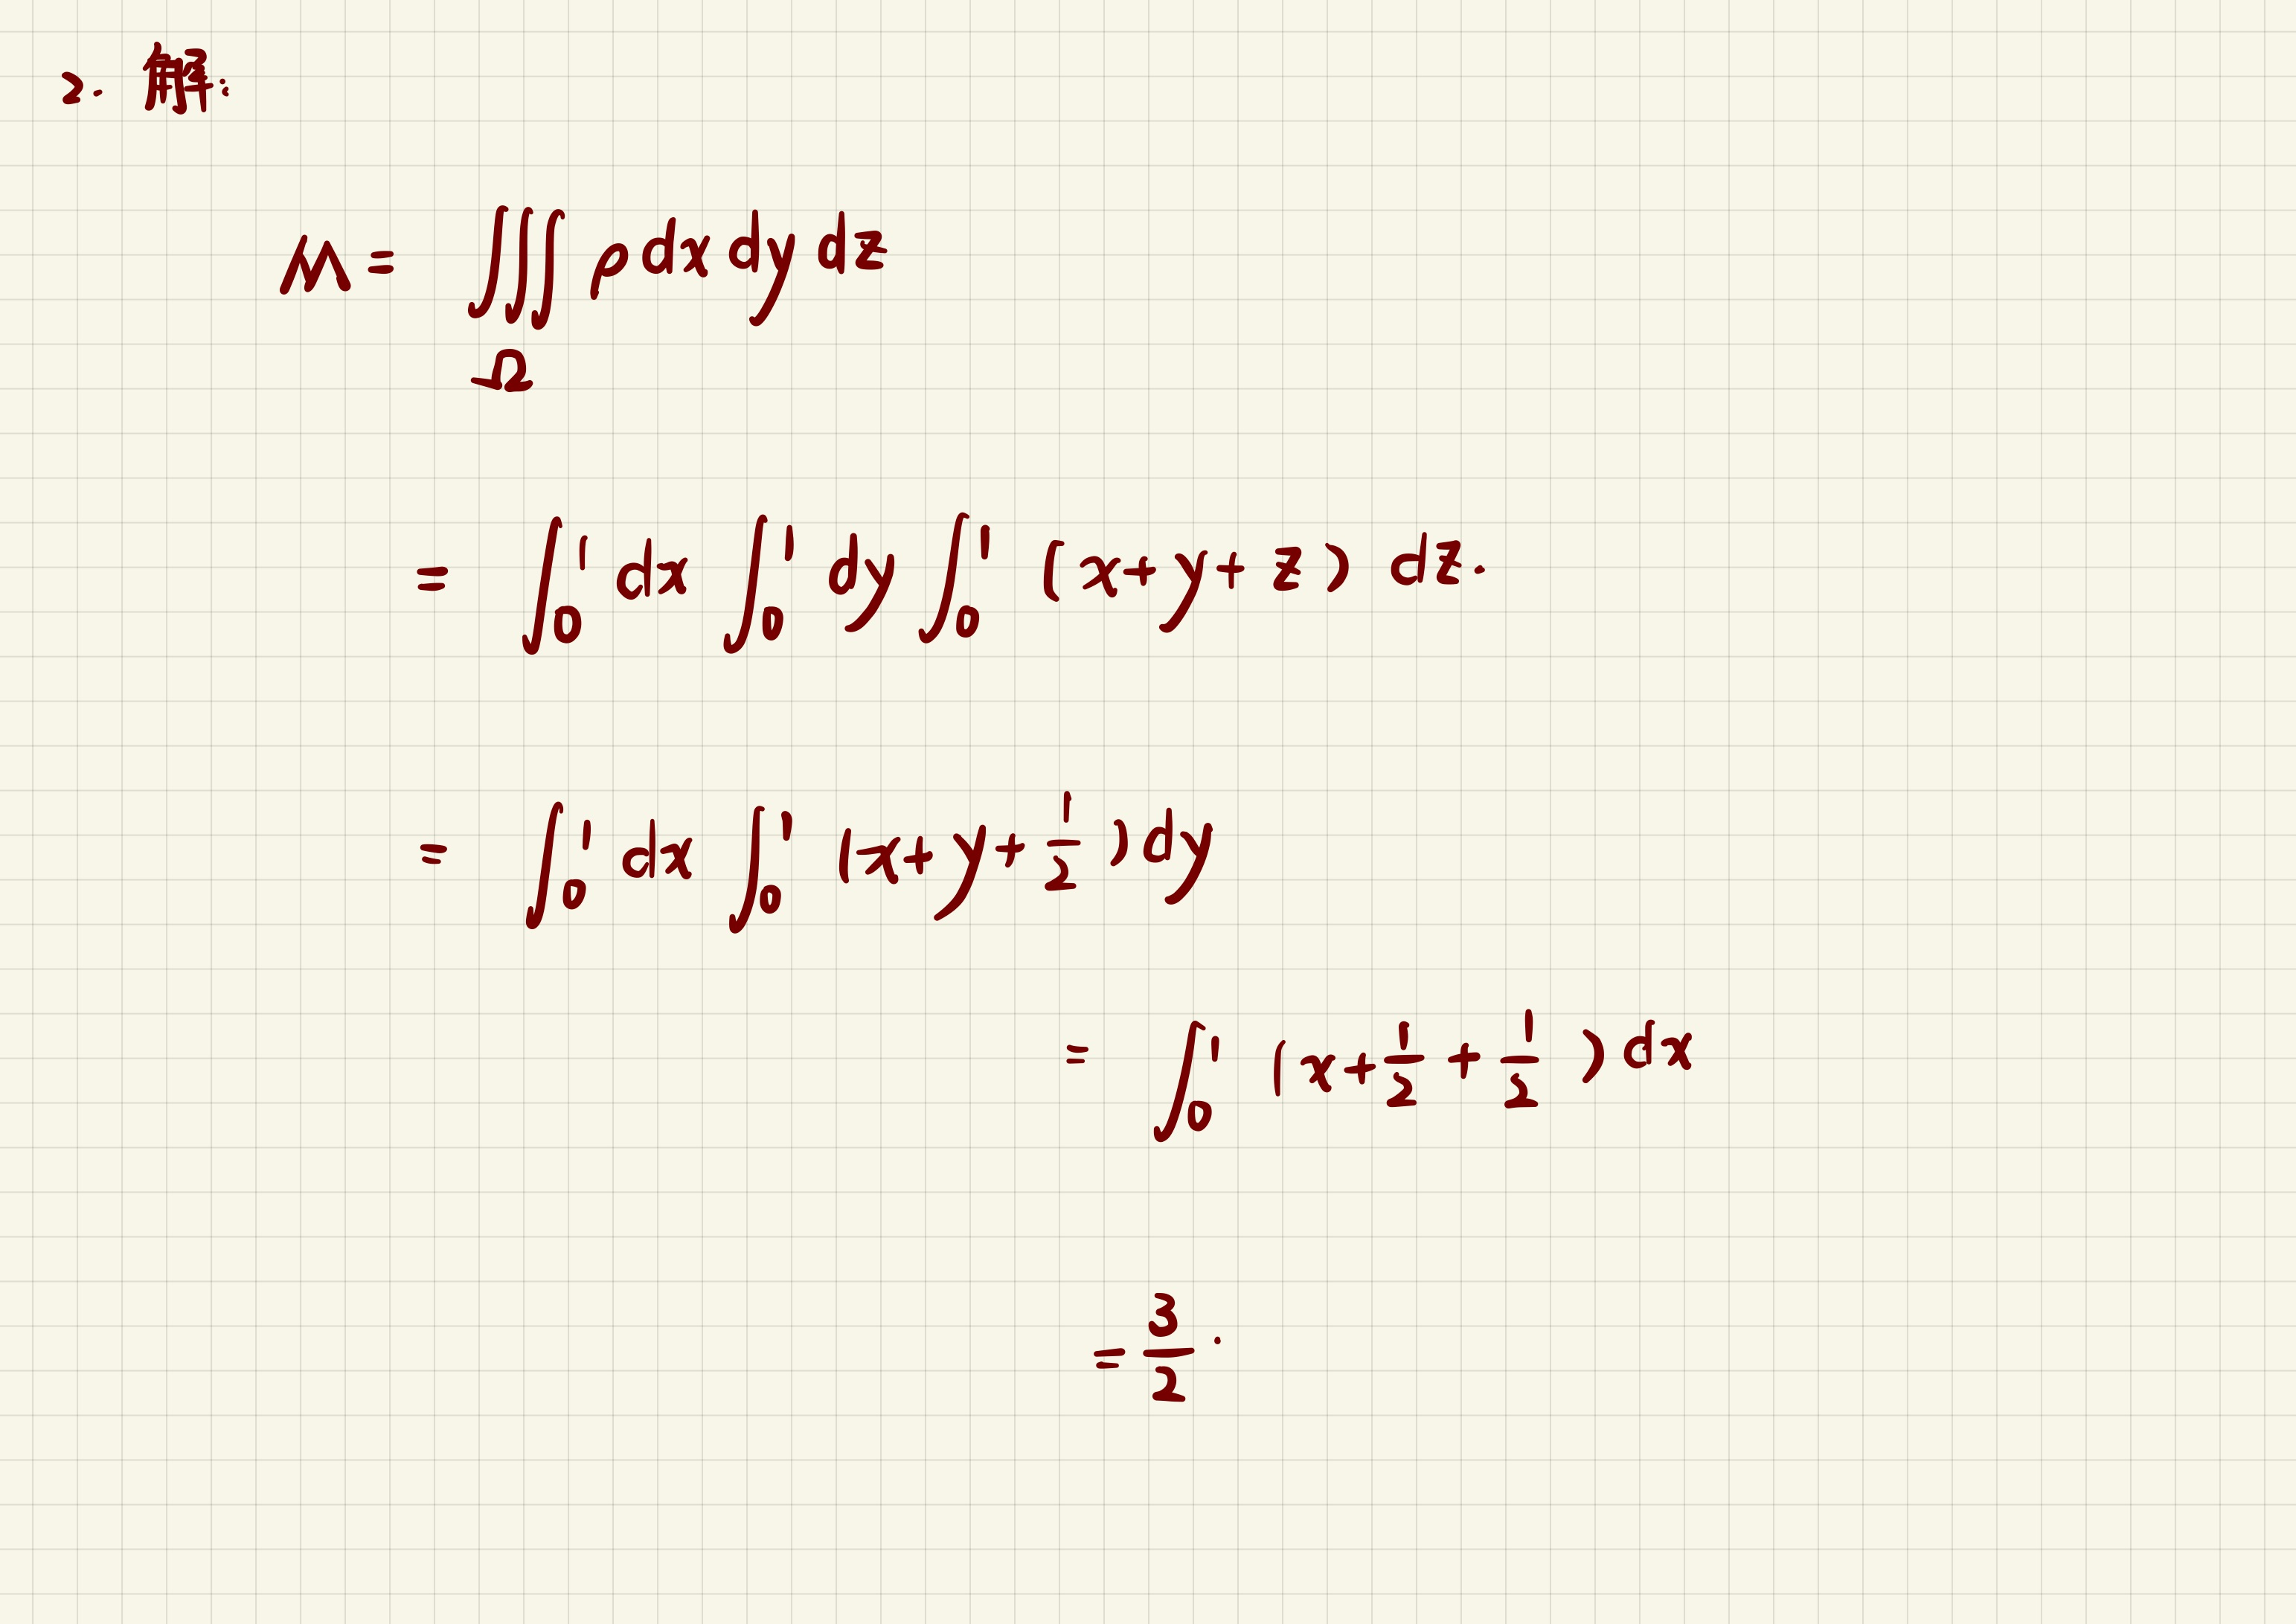 2. 解:
M = ∭_Ω ρ dx dy dz
= ∫₀¹ dx ∫₀¹ dy ∫₀¹ (x+y+z) dz.
= ∫₀¹ dx ∫₀¹ (x+y+1/2) dy
= ∫₀¹ (x+1/2+1/2) dx
= 3/2.